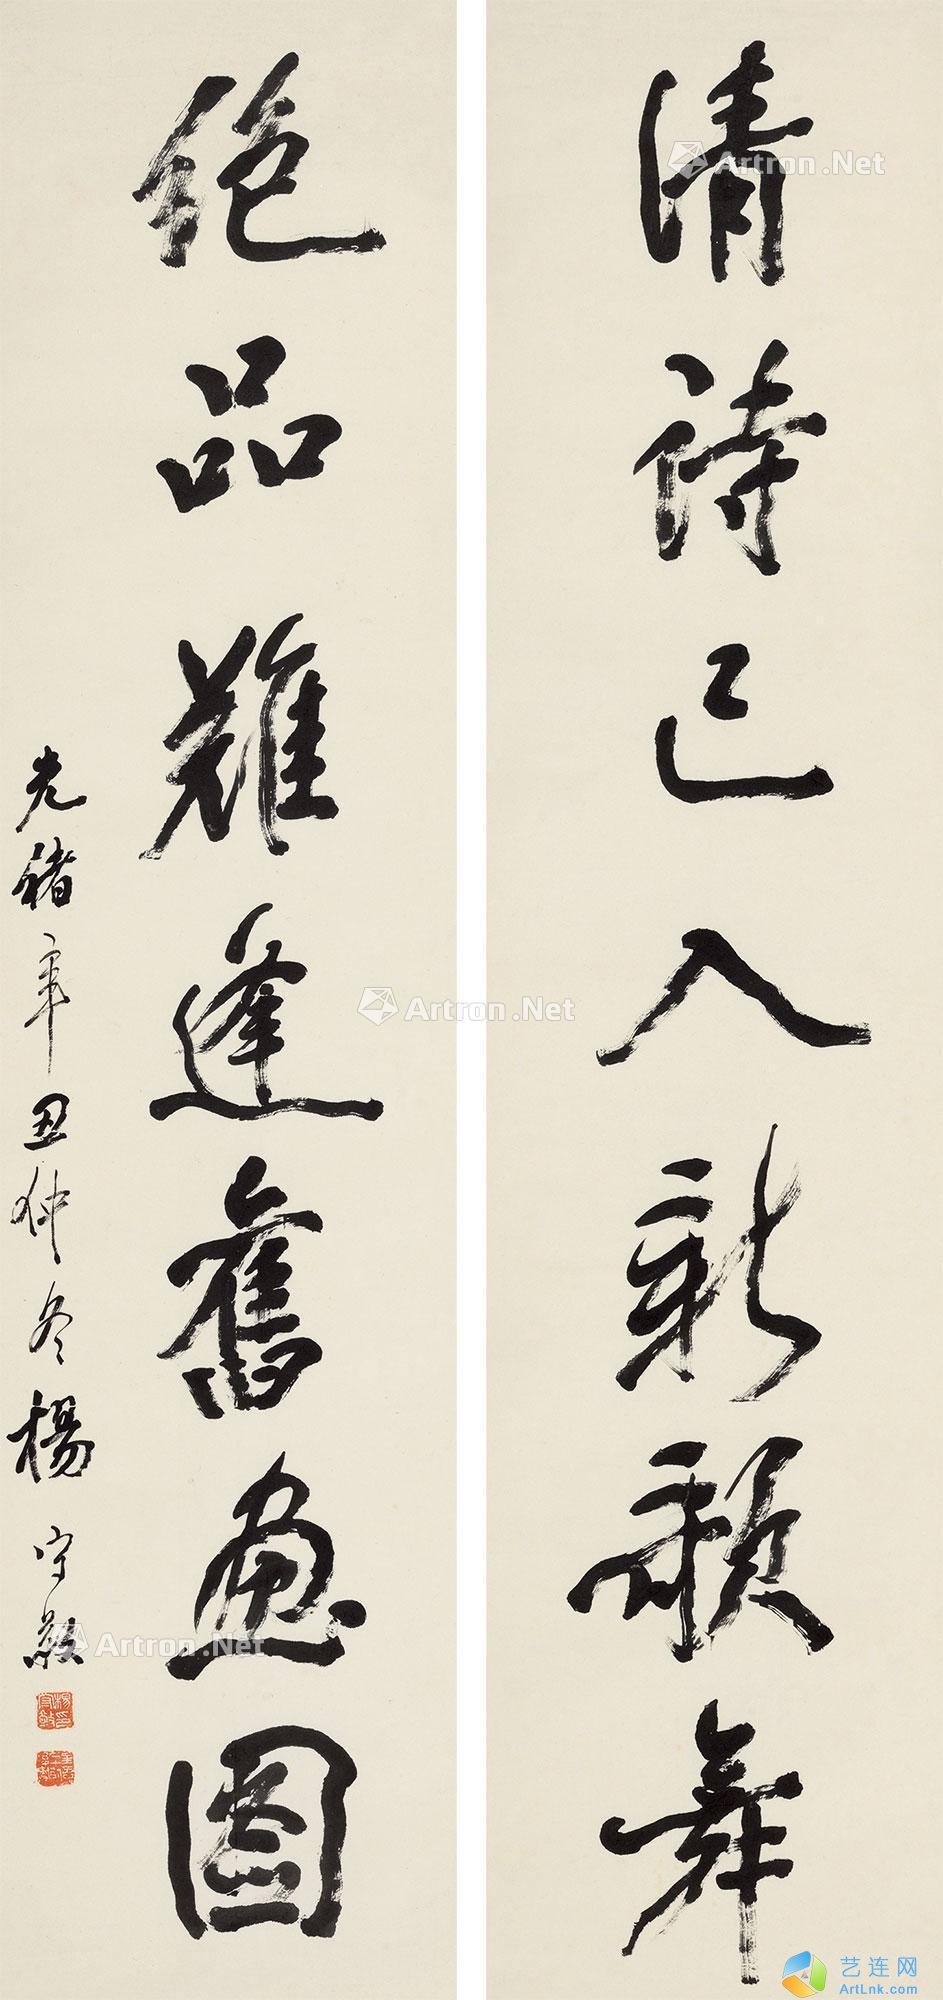 清詩已入新歌舞
絕品難逢舊畫圖
光緒辛丑仲冬楊守敬
楊守敬印
Artron.Net
Artron.Net
Artron.Net
Artron.Net
艺连网
ArtLnk.com